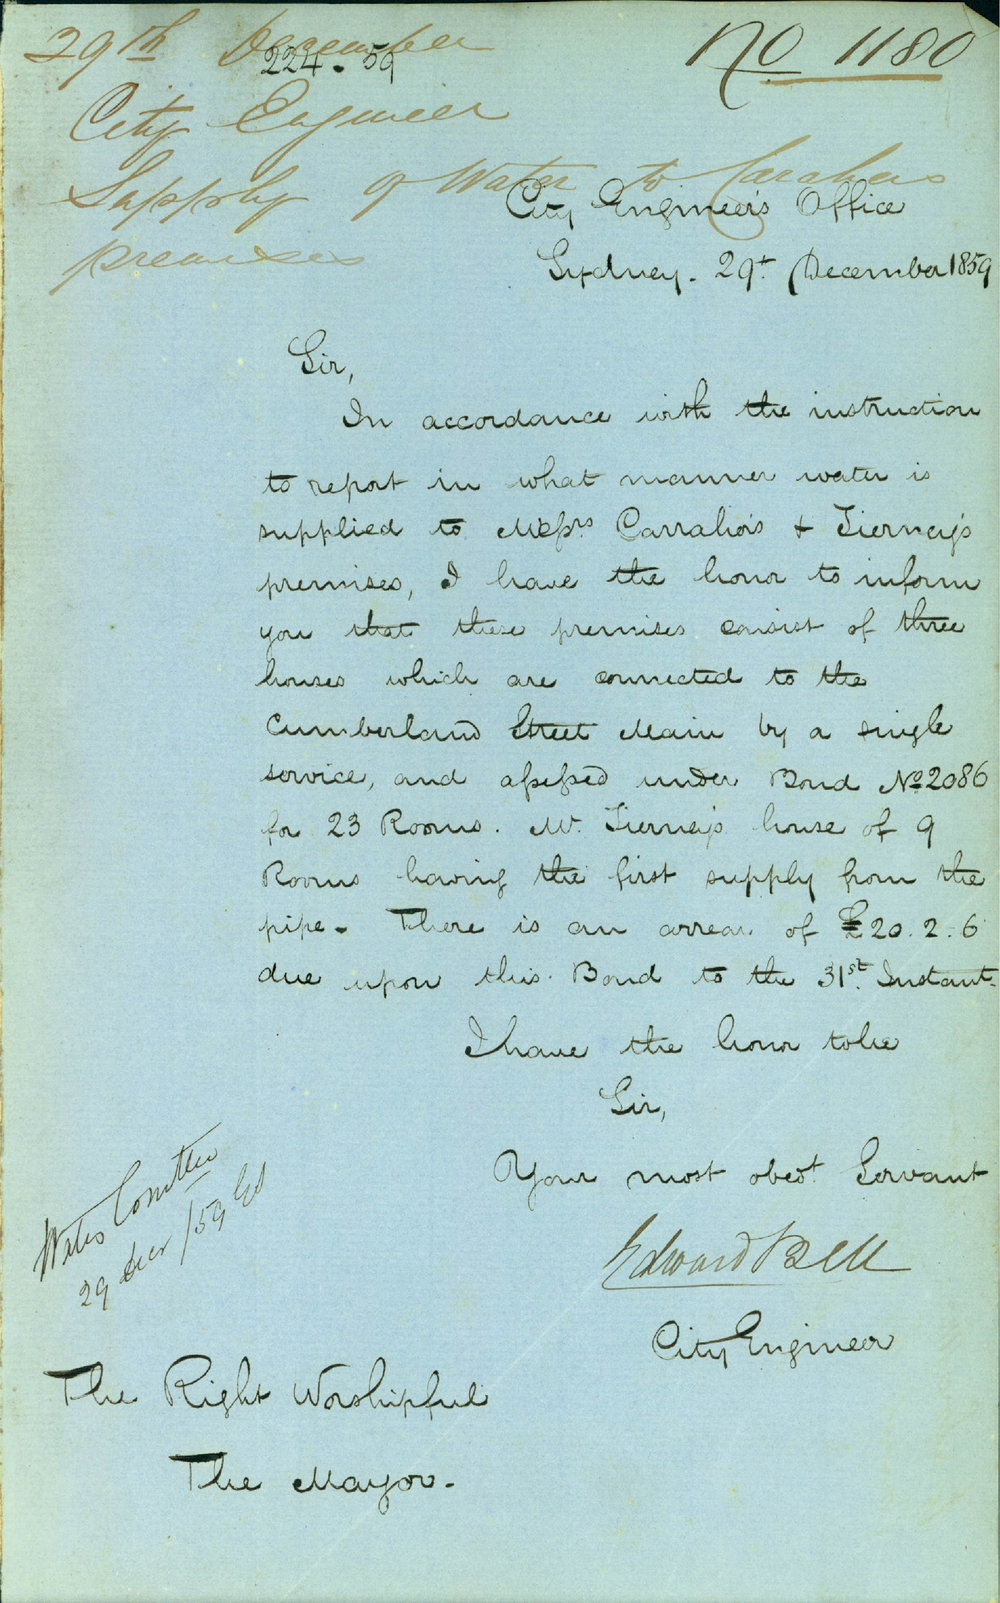 29th December
224-59
No 1180
City Engineer
Supply of Water to Carahers
premises
City Engineer's Office
Sydney. 29t. December 1859
Sir,
In accordance with the instruction
to report in what manner water is
supplied to Messrs. Carraher's & Tierney's
premises, I have the honor to inform
you that these premises consist of three
houses which are connected to the
Cumberland Street Main by a single
service, and assessed under Bond No 2086
for 23 Rooms. Mr. Tierney's house of 9
Rooms having the first supply from the
pipe. There is an arrear of £20.2.6
due upon this Bond to the 31st. Instant.
I have the honor to be
Sir,
Your most obedt. Servant
Edward Bell
City Engineer
Water Comttee
29 Decr /59
The Right Worshipful
The Mayor.